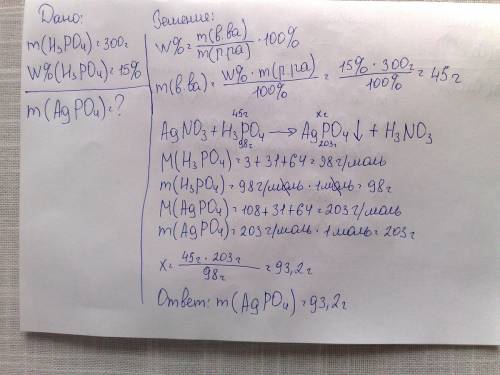 Дано:
m(H₃PO₄)=300г
W%(H₃PO₄)=15%
m(AgPO₄)=?
Решение:
W%= m(в.ва)/m(р.ра) · 100%
m(в.ва)= W% · m(р.ра)/100% = 15% · 300г/100% = 45г
45г xг
AgNO₃ + H₃PO₄ → AgPO₄↓ + H₃NO₃
98г 203г
M(H₃PO₄)=3+31+64=98г/моль
m(H₃PO₄)=98г/моль · 1моль=98г
M(AgPO₄)=108+31+64=203г/моль
m(AgPO₄)=203г/моль · 1моль=203г
x= 45г · 203г/98г =93,2г
Ответ: m(AgPO₄)=93,2г